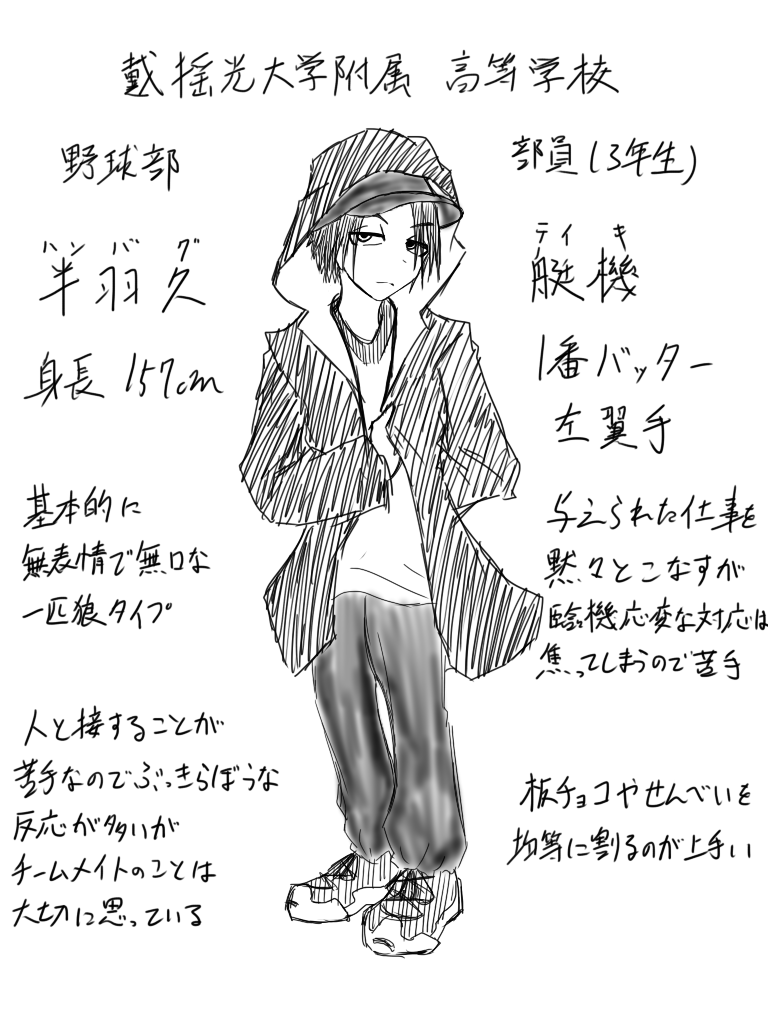 戴揺光大学附属 高等学校
野球部
部員(3年生)
ハンバグ
半羽久
ティキ
艇機
身長 157cm
1番バッター
左翼手
基本的に
無表情で無口な
一匹狼タイプ
与えられた仕事を
黙々とこなすが
臨機応変な対応は
焦ってしまうので苦手
人と接することが
苦手なのでぶっきらぼうな
反応が多いが
チームメイトのことは
大切に思っている
板チョコやせんべいを
均等に割るのが上手い